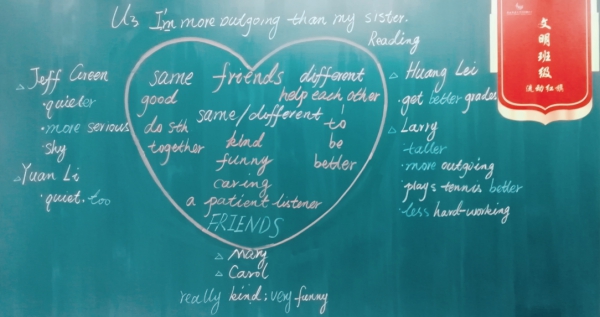 U3 I'm more outgoing than my sister.
Reading
Jeff Green
·quieter
·more serious
·shy
Yuan Li
·quiet. too
same friends different
good help each other
same/different
do sth to
together kind be
funny better
caring
a patient listener
FRIENDS
Mary
Carol
really kind; very funny
Huang Lei
·get better grades
Larry
·taller
·more outgoing
·plays tennis better
·less hard-working
文明班级
流动红旗